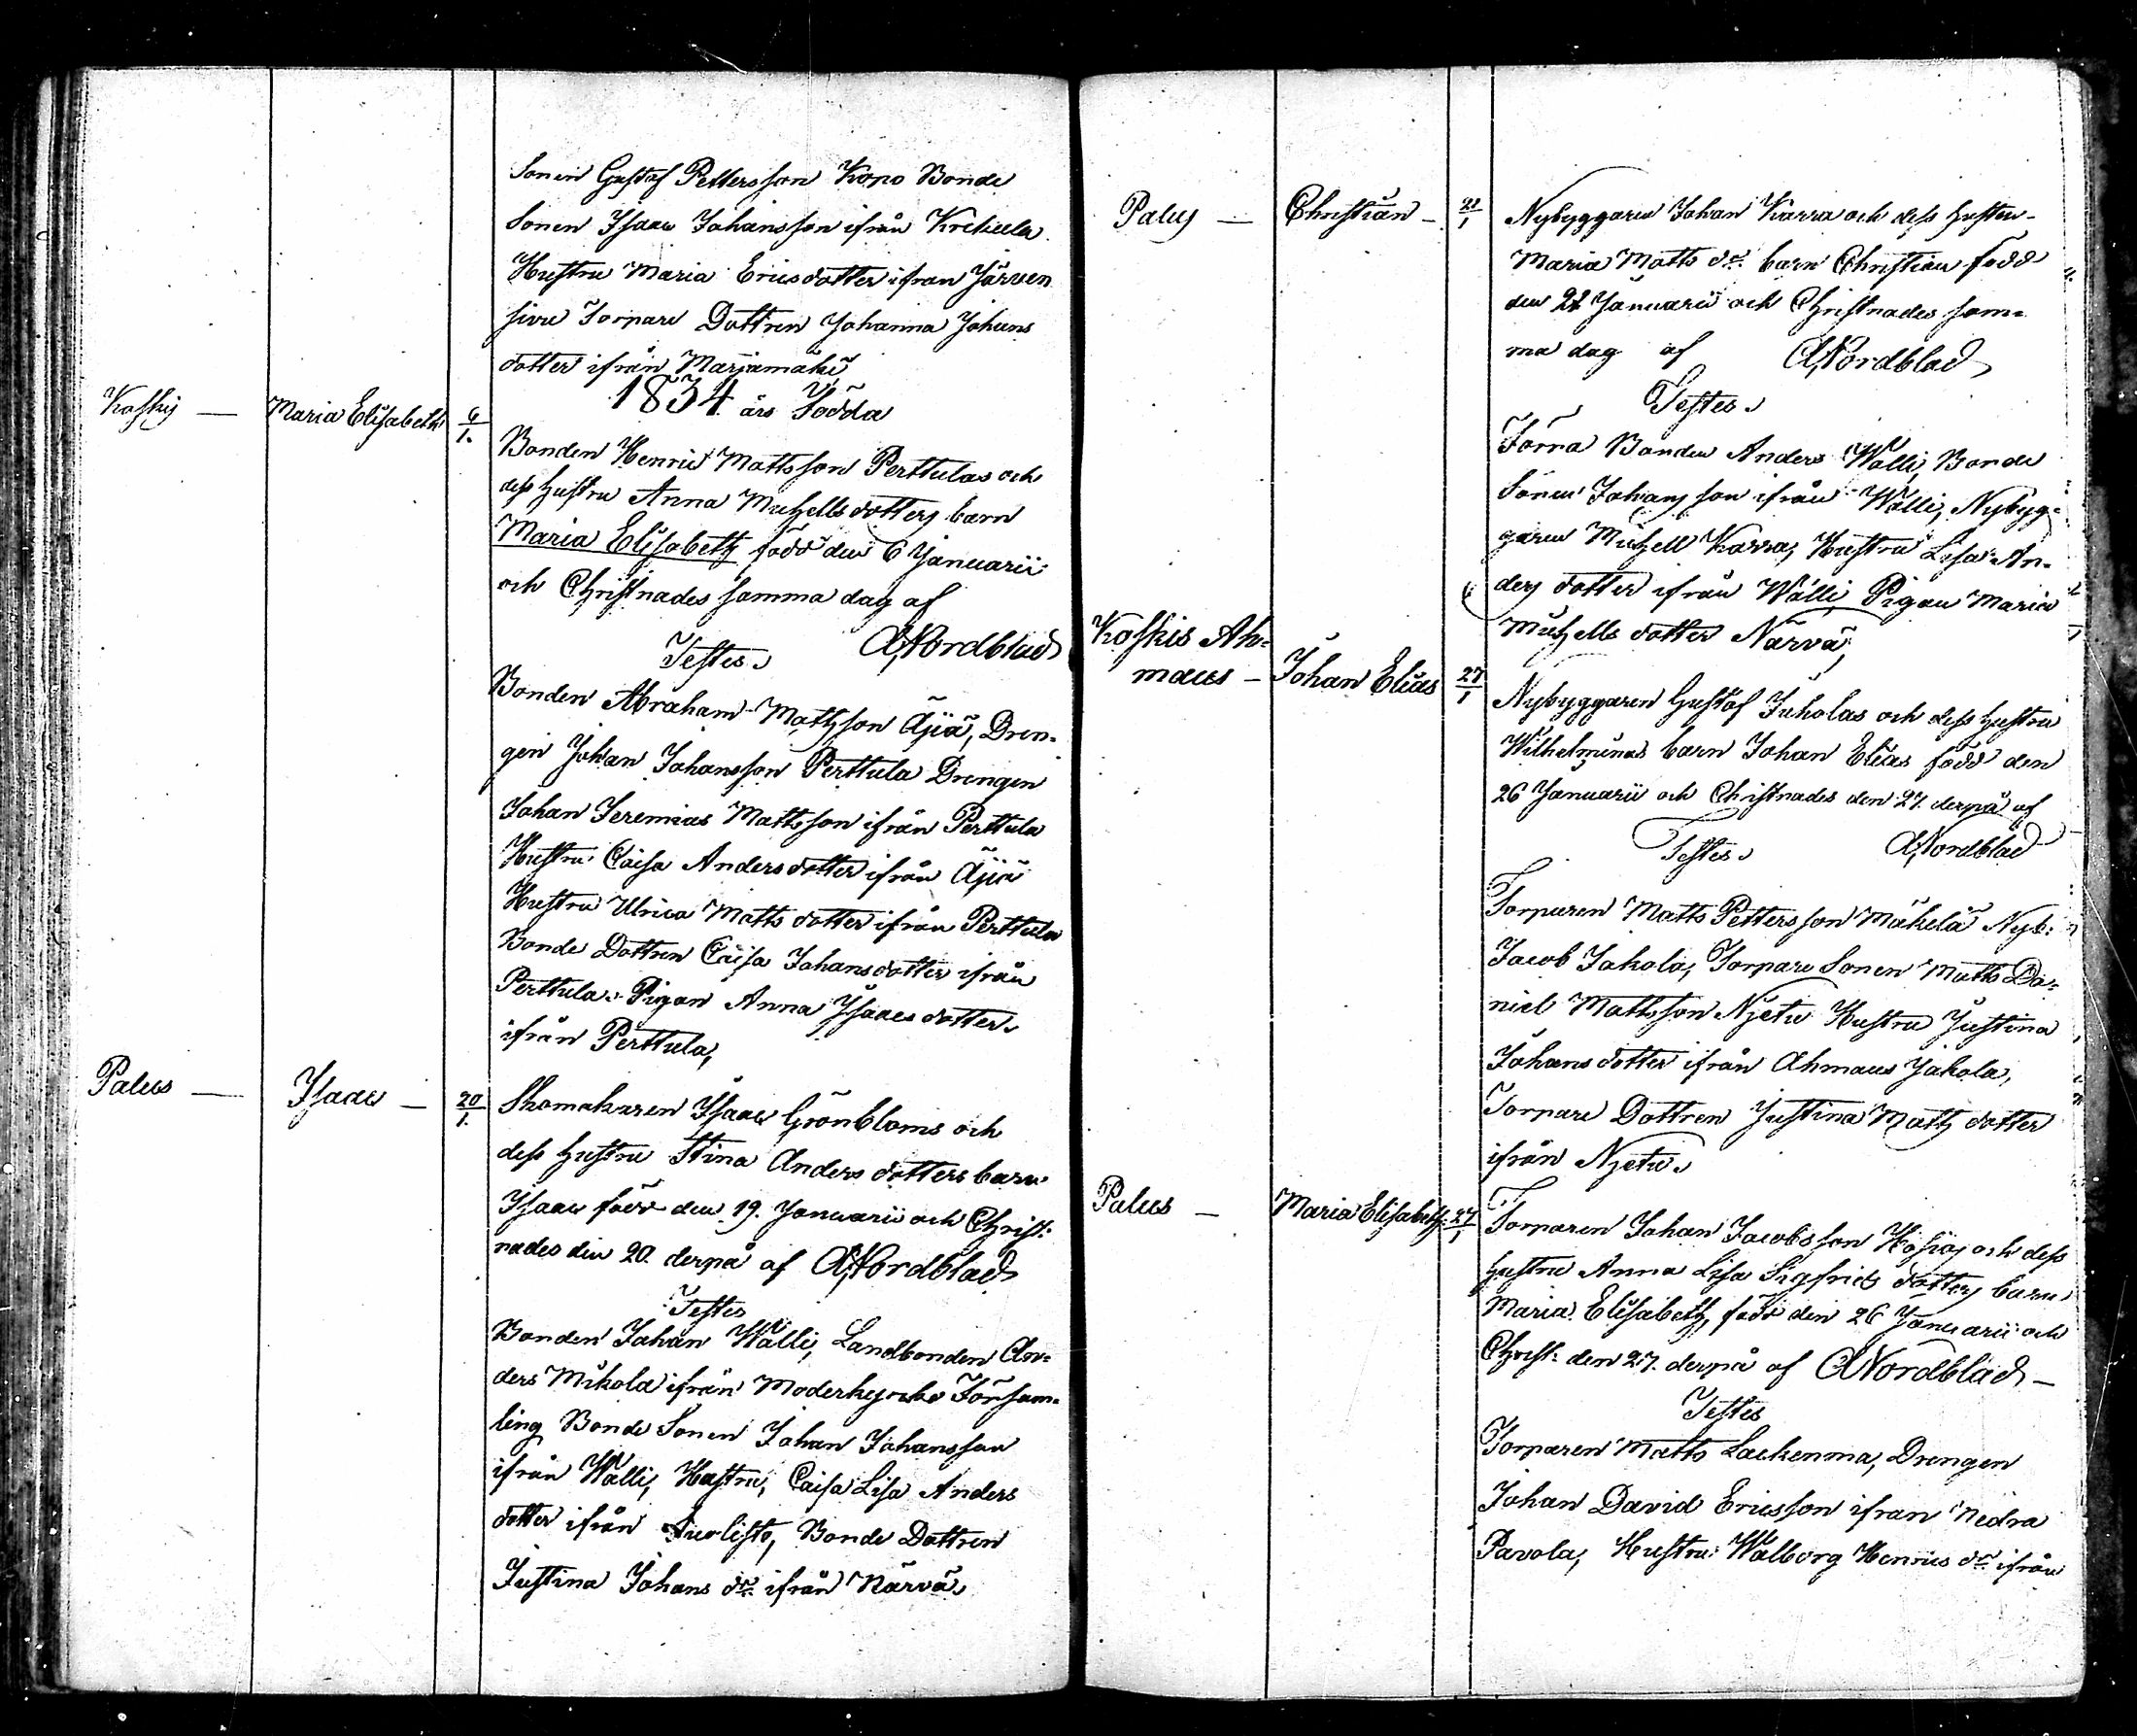 Sonen Gustaf Pettersson Kono Bonde
Sonen Isaac Johansson ifrån Krekula
Hustru Maria Ericsdotter ifran Järven
sivu Torpare Dottren Johanna Johans
dotter ifrån Marjamäki
1834 års Födda
Kosky — Maria Elisabeth 6/1.
Bonden Henric Mattsson Perttulas och
dess hustru Anna Michells dotters barn
Maria Elisabeth född den 6 Januarii
och Christnades samma dag af
Testes ANordblad
Bonden Abraham Mathson Äjiä, Dren-
gen Johan Johansson Perttula Drengen
Johan Jeremias Mattsson ifrån Perttula
Hustru Caisa Andersdotter ifrån Äjiä
Hustru Ulrica Matts dotter ifrån Perttula
Bonde Dottren Caisa Johansdotter ifrån
Perttula. Pigan Anna Isaacs dotter
ifrån Perttula,
Palus — Isaac — 20/1.
Skomakaren Isaac Grönbloms och
dess hustru Stina Anders dotters barn
Isaac född den 19. Januarii och Christ-
nades den 20. derpå af ANordblad
Testes
Bonden Johan Wälli, Landbonden An-
ders Mikola ifrån Moderkyrko Försam-
ling Bonde Sonen Johan Johansson
ifrån Wälli, Hustru, Caisa Lisa Anders
dotter ifrån Bonde Dottren
Justina Johans dr. ifrån Närvä
Palus — Christian — 22/1
Nybyggaren Johan Karra och dess hustru
Maria Matts dr. barn Christian född
den 22 Januarii och Christnades sam-
ma dag af ANordblad
Testes
Förra Bonden Anders Wälli, Bonde
Sonen Johansson ifrån Wälli, Nybyg-
garen Michell Karra, Hustru Lisa An-
ders dotter ifrån Wälli Pigan Maria
Michells dotter Närvä,
Koskis Ah-
maus — Johan Elias 27/1
Nybyggaren Gustaf Juholas och dess hustru
Wilhelminas barn Johan Elias född den
26 Januarii och Christnades den 27. derpå af
Testes ANordblad
Torparen Matts Pettersson Mäkelä Nyb:
Jacob Jakola, Torpare Sonen Matts Da-
niel Mattsson Njetu Hustru Justina
Johans dotter ifrån Ahmaus Jakola,
Torpare Dottren Justina Matts dotter
ifrån Njetu
Palus — Maria Elisabeth 27/1
Torparen Johan Jacobsson och dess
hustru Anna Lisa Sigfrids dotters barn
Maria Elisabeth, född den 26 Januarii och
Christ: den 27. derpå af ANordblad —
Testes
Torparen Matts Lackenma, Drengen
Johan David Ericsson ifran Nedra
Pavola, Hustru Walborg Henrics dr. ifrån